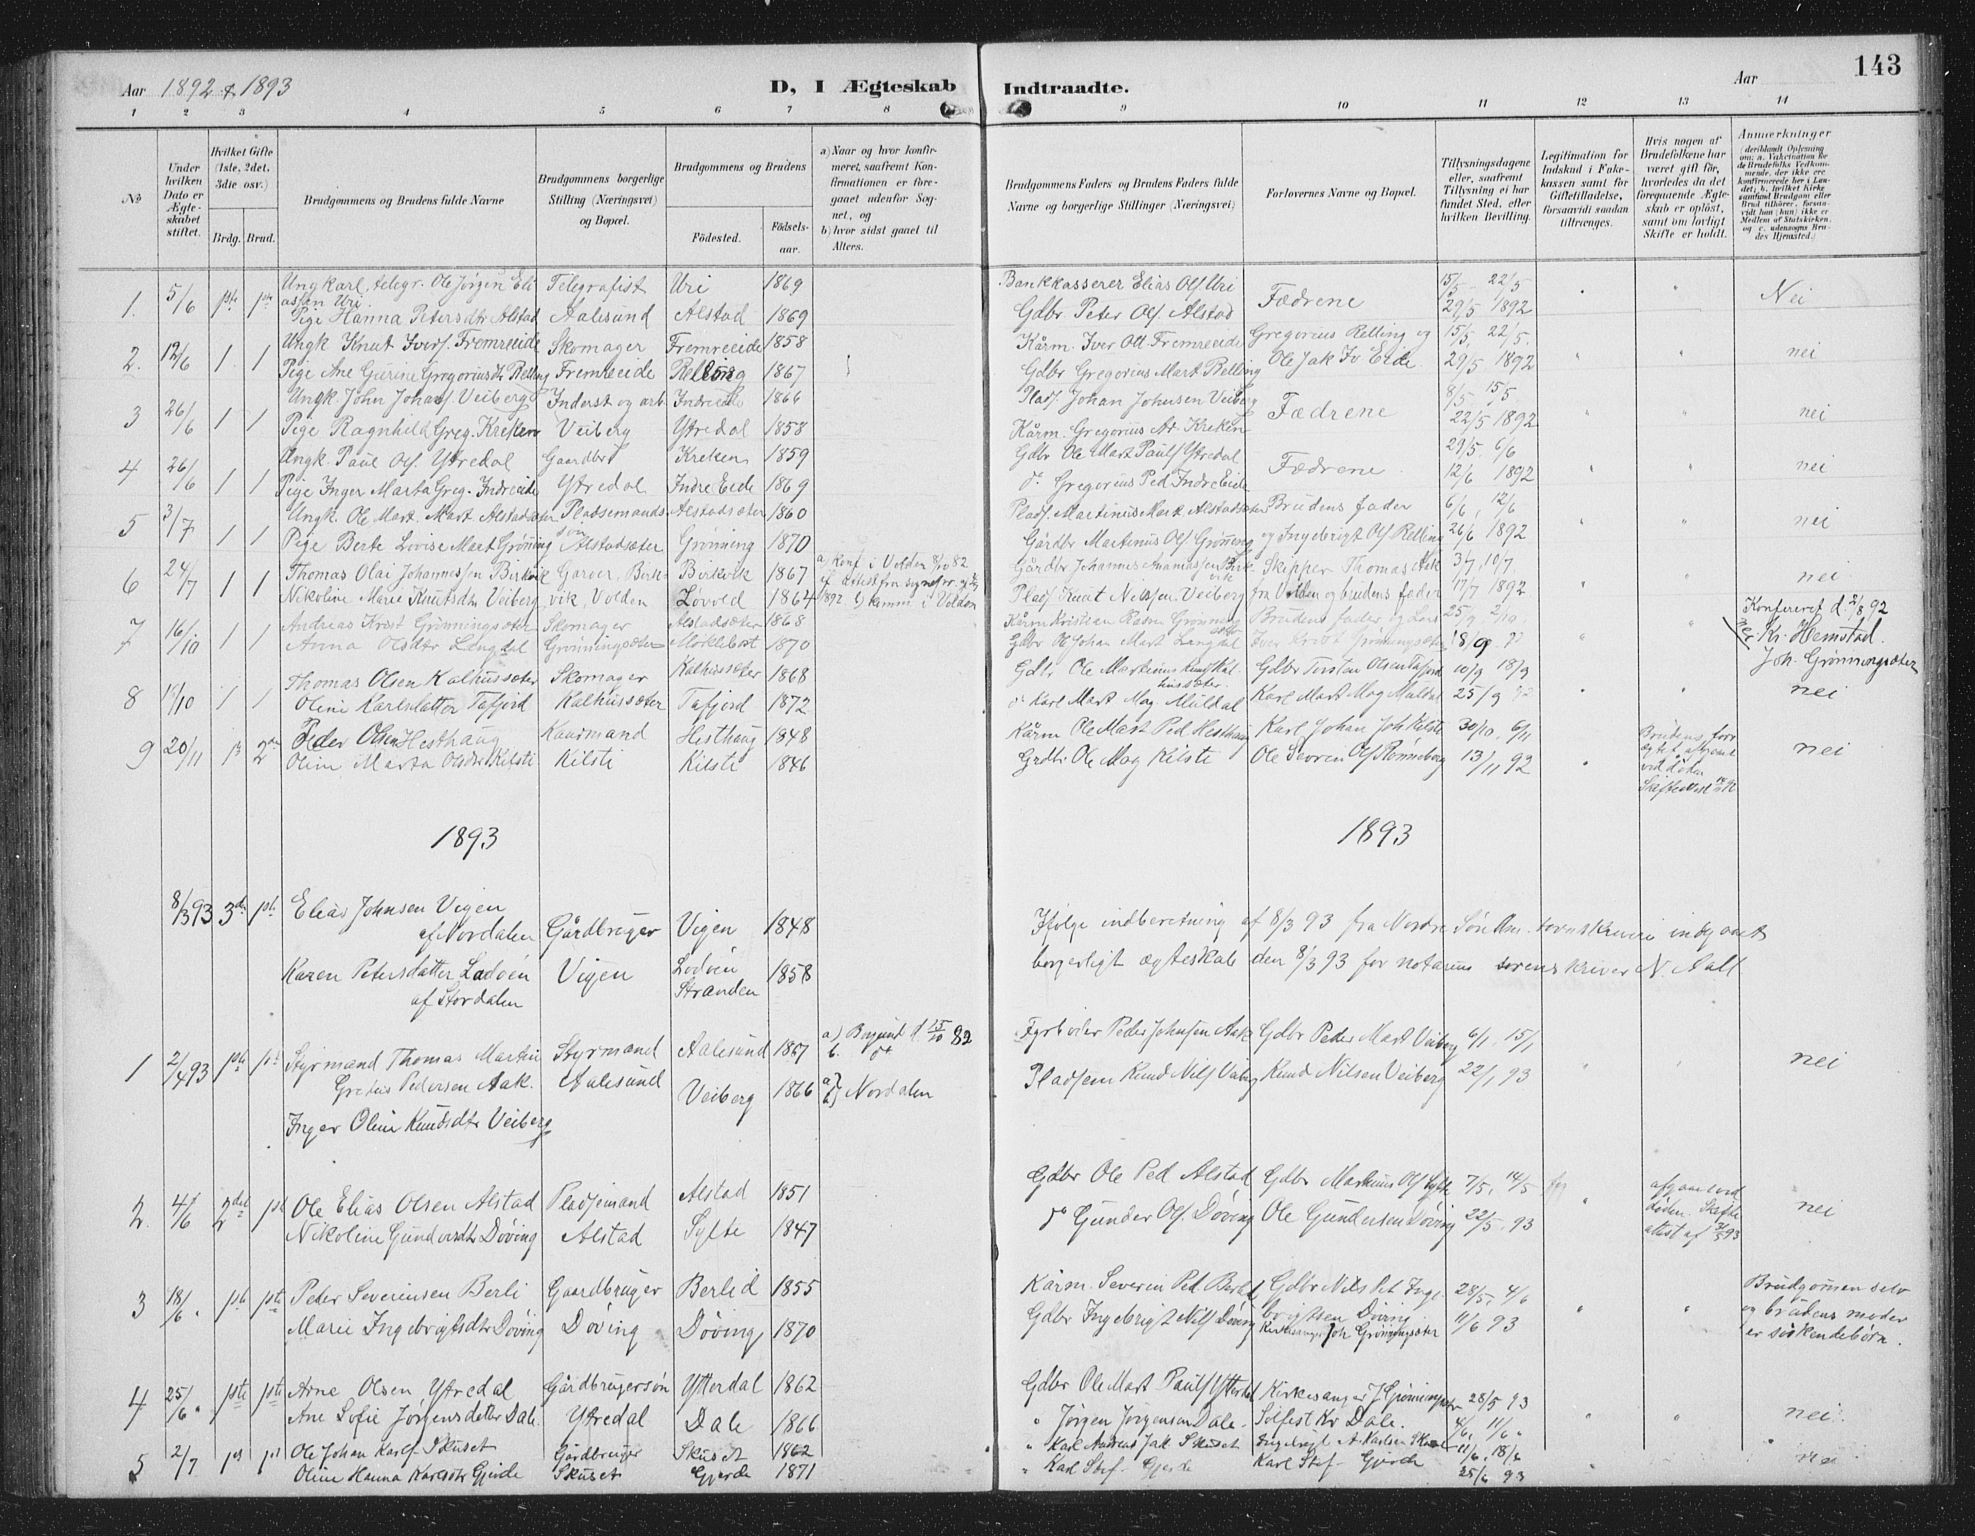 Aar 1892 & 1893
D, I Ægteskab Indtraadte.
Aar
143
1 2 3 4 5 6 7 8 9 10 11 12 13 14
No
Under hvilken Dato er Ægteskabet stiftet.
Hvilket Gifte (1ste, 2det, 3die osv.)
Brdg. Brud.
Brudgommens og Brudens fulde Navne
Brudgommens borgerlige Stilling (Næringsvei) og Bopæl.
Brudgommens og Brudens
Födested.
Födsels-aar.
a) Naar og hvor konfirmeret, saafremt Konfirmationen er foregaaet udenfor Sognet, og
b) hvor sidst gaaet til Alters.
Brudgommens Faders og Brudens Faders fulde Navne og borgerlige Stillinger (Næringsvei)
Forlovernes Navne og Bopæl.
Tillysningsdagene eller, saafremt Tillysning ei har fundet Sted, efter hvilken Bevilling.
Legitimation for Indskud i Enkekassen samt for Giftetilladelse, forsaavidt saadan tiltrænges.
Hvis nogen af Brudefolkene har været gift før, hvorledes da det foregaaende Ægteskab er opløst, samt om lovligt Skifte er holdt.
Anmerkninger
1. 5/6 1ste 1ste Ungkarl, telegr. Ole Jörgen Eliassen Uri. Telegrafist Uri 1869 Bankkasserer Elias Ols. Uri Fædrene 15/5 22/5 Nei
Pige Hanna Petersdtr Alstad Aalesund Alstad 1869 Gdbr. Peter Ols. Alstad 29/5 1892
2. 12/6 1 1 Ungk Knut Ivers. Fremreeide Skomager Fremreeide 1858 Kårm. Iver Ott. Fremreeide Gregorius Relling og 15/5, 22/5. nei
Pige Ane Gurine Gregoriusdtr Relling Fremreeide Relling 1867 Gdbr Gregorius Mart Relling Ole Jak Iv Eide 29/5 1892
3 26/6 1 1 Ungk. John Johans. Veiberg Inderst og arb. Indreeide 1866 Plads. Johan Johnsen Veiberg Fædrene 8/5 15/5 nei
Pige Ragnhild Greg. Kreken Veiberg Ytredal 1858 Kårm. Gregorius Kreken 22/5 1892
4 26/6 1 1 Ungk. Paul Ols. Ytredal Gaardbr Kreken 1859 Gdbr Ole Mart Pauls Ytredal Fædrene 29/5 6/6 nei
Pige Inger Marta Greg. Indreeide Ytredal Indre Eide 1869 do Gregorius Ped Indreeide 12/6 1892
5 3/7 1 1 Ungk. Ole Mart. Mart. Alstadsæter Pladsemands- Alstadsæter 1860 Plads. Martinus Mark Alstadsæter Brudens fader 6/6, 12/6 nei
Pige Berte Lovise Mart Grönning søn Alstadsæter Grönning 1870 Gårdbr Martinus Ols Grönning og Ingebrigt Ols Relling 26/6 1892
6 24/7 1 1 Thomas Olai Johannessen Birkvik Garver, Birk- Birkvik 1867 a) Konf i Volden 8/10 82 Gårdbr Johannes Birkvik Skipper Thomas Aak 3/7, 10/7. nei
Nikoline Marie Knutsdtr Veiberg vik, Volden Løvold 1864 Plads Knut Nilsen Veiberg fra Volden og brudens fader 17/7 1892
7 16/10 1 1 Andreas Krist Grönningsæter Skomager Alstadsæter 1868 Kårm Kristian Rasm Grönning Brudens fader og Lars 25/9 2/10 Konfereret d. 2/8 92
Anna Olsdtr Langdal Grönningsæter Moklebost 1870 Gdbr Ole Johan Mart Langdal Iver Krist Grönningsæter nei Kr. Hemstad.
Joh. Grönningsæter
8 10 1 1 Thomas Olsen Kalhussæter Skomager Kalhussæter 1868 Gdbr Ole Martinus Kalhussæter. Gdbr Torsten Olsen Tafjord 10/9 18/9 nei
Oline Karlsdatter Tafjord Kalhussæter Tafjord 1872 do Karl Mart Mag Muldal Karl Mart Mag Muldal 25/9 92
9 20/11 1ste 2det Peder Olsen Hesthaug Kaarmand Hesthaug 1848 Kårm Ole Mart Ped Hesthaug Karl Johan Joh Kilste 30/10, 6/11 Brudens forr nei
Oline Marta Olsdtr Kilsti Kilsti Kilsti 1846 Grdbr Ole Mag Kilsti Ole Severen Ols Rönneberg 13/11 92 ved døden
1893 1893
8/3 93 3die 1ste Elias Johnsen Vigen af Nordalen Gårdbruger Vigen 1848 Ifölge indberetning af 8/3 93 fra Nordre Sönm. sorenskriveri indgaaet
Karen Petersdatter Lødøen af Stordalen Vigen Lødøen Stranden 1858 borgerligt ægteskab den 8/3 93 for notarius sorenskriver N. Aall
1 2/4 93 1ste 1ste Styrmand Thomas Martin Styrmand Aalesund 1867 a) Borgund d 15/10 82 Fyrböder Peder Johnsen Aak Gdbr Peder Mart Veiberg 6/1, 15/1 nei
Gretus Pedersen Aak. Aalesund b. do
Inger Oline Knudsdtr Veiberg Veiberg 1866 a) b) Nordalen Pladsem Knud Nils Veiberg Knud Nilsen Veiberg 22/1, 93
2. 4/6 2det 1ste Ole Elias Olsen Alstad Pladsemand Alstad 1851 Gdbr Ole Ped Alstad Gdbr Markus Ols Sylte 7/5, 14/5 afgaaet ved nei
Nikoline Gundersdtr Døving Alstad Sylte 1847 do Gunder Ols. Døving Ole Gundersen Døving 22/5, 93 døden. Skifteattest af 93
3 18/6 " 1ste 1ste Peder Severinsen Berli Gaardbruger Berlid 1855 Kårm. Severin Ped. Berlid Gdbr Nils Pet Inge- 28/5, 4/6 Brudgommen selv
Marie Ingebrigtsdtr Døving Døving Døving 1870 Gdbr Ingebrigt Nils Døving brigtsen Døving 11/6 93 og brudens moder
Kirkesanger Joh Grönningsæter er söskendebörn.
4 25/6 " 1ste 1ste Arne Olsen Ytredal Gårdbrugersön Ytterdal 1862 Gdbr Ole Mart Pauls Ytterdal Kirkesanger J Grönningsæter 28/5 93 nei.
Ane Sofie Jörgensdatter Dale. Ytredal Dale 1866 " Jörgen Jörgensen Dale. Solfest Kr Dale. 4/6, 11/6 "
5 2/7 1ste 1ste Ole Johan Karls. Skuset Gårdbruger Skuset 1862 " Karl Andreas Jak Skuset Ingebrigt A. Karlsen Skuset 11/6, 18/6 nei
Oline Hanna Karlsdtr Gjerde Skuset Gjerde 1871 " Karl Stef. Gjerde Karl Stef Gjerde 25/6 93